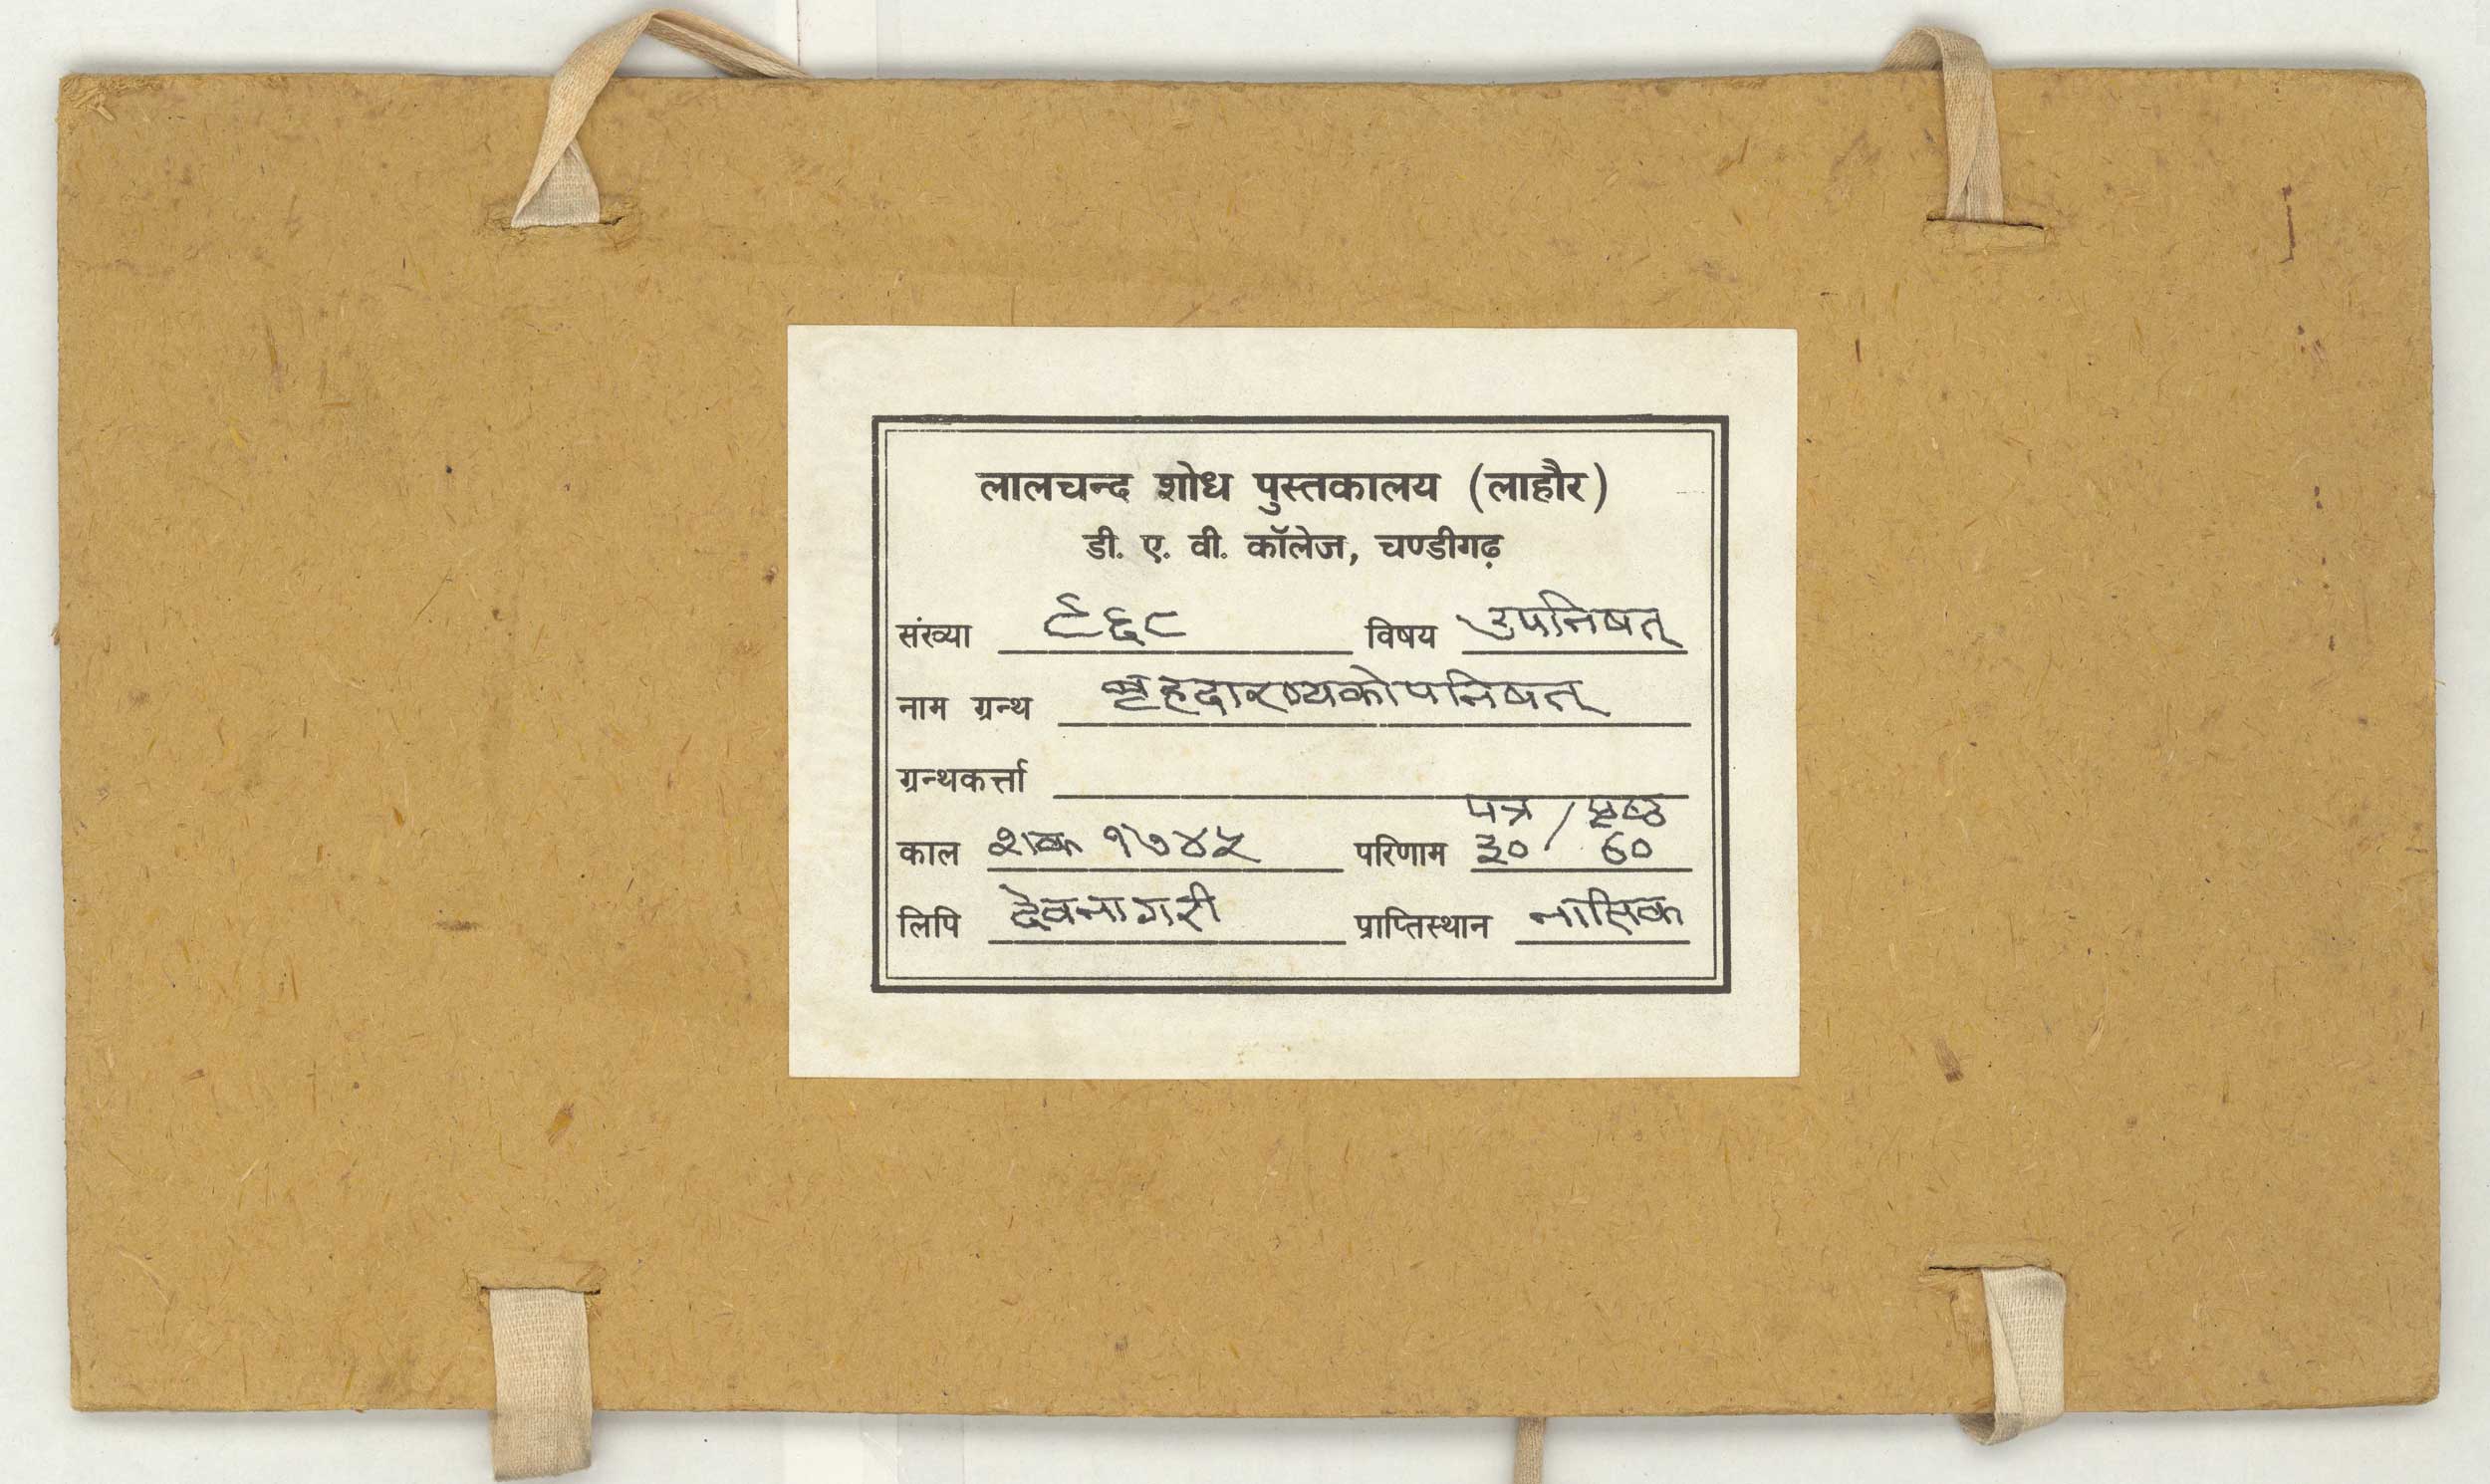 लालचन्द शोध पुस्तकालय (लाहौर)
डी. ए. वी. कॉलेज, चण्डीगढ़
संख्या ९६८ विषय उपनिषत्
नाम ग्रन्थ बृहदारण्यकोपनिषत्
ग्रन्थकर्त्ता
पत्र / पृष्ठ
काल शक १७४५ परिणाम ३० / ६०
लिपि देवनागरी प्राप्तिस्थान नासिक